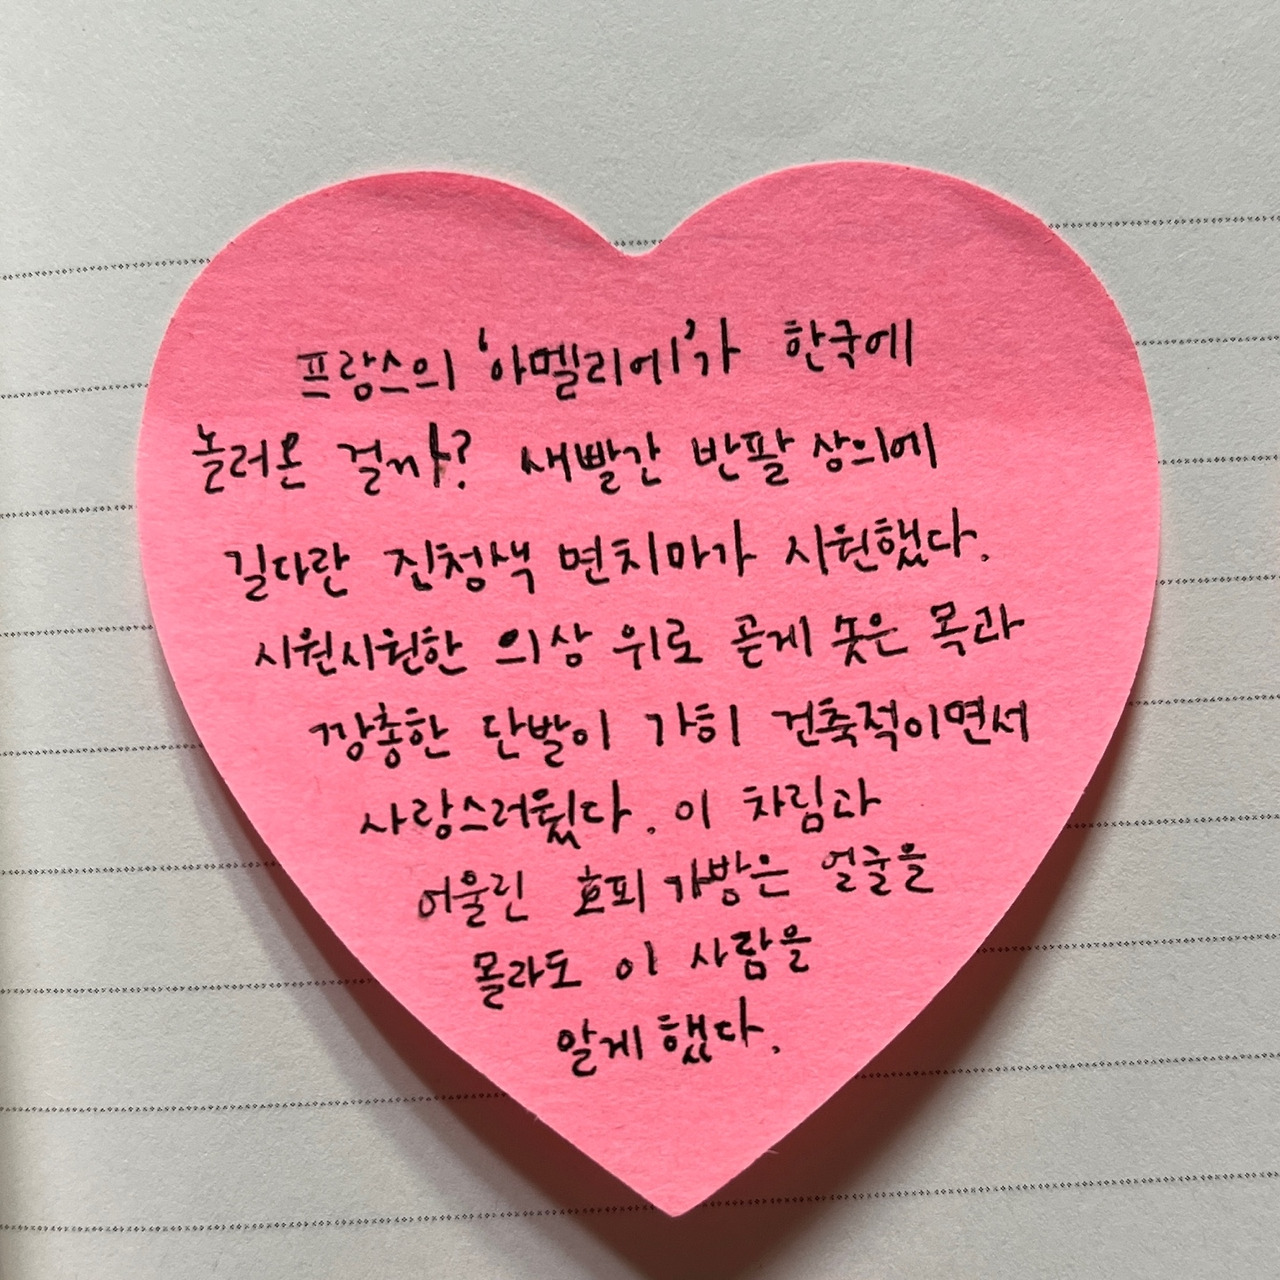 프랑스의 '아멜리에'가 한국에
놀러온 걸까? 새빨간 반팔 상의에
길다란 진청색 면치마가 시원했다.
시원시원한 의상 위로 곧게 솟은 목과
깡총한 단발이 가히 건축적이면서
사랑스러웠다. 이 차림과
어울린 호피 가방은 얼굴을
몰라도 이 사람을
알게 했다.